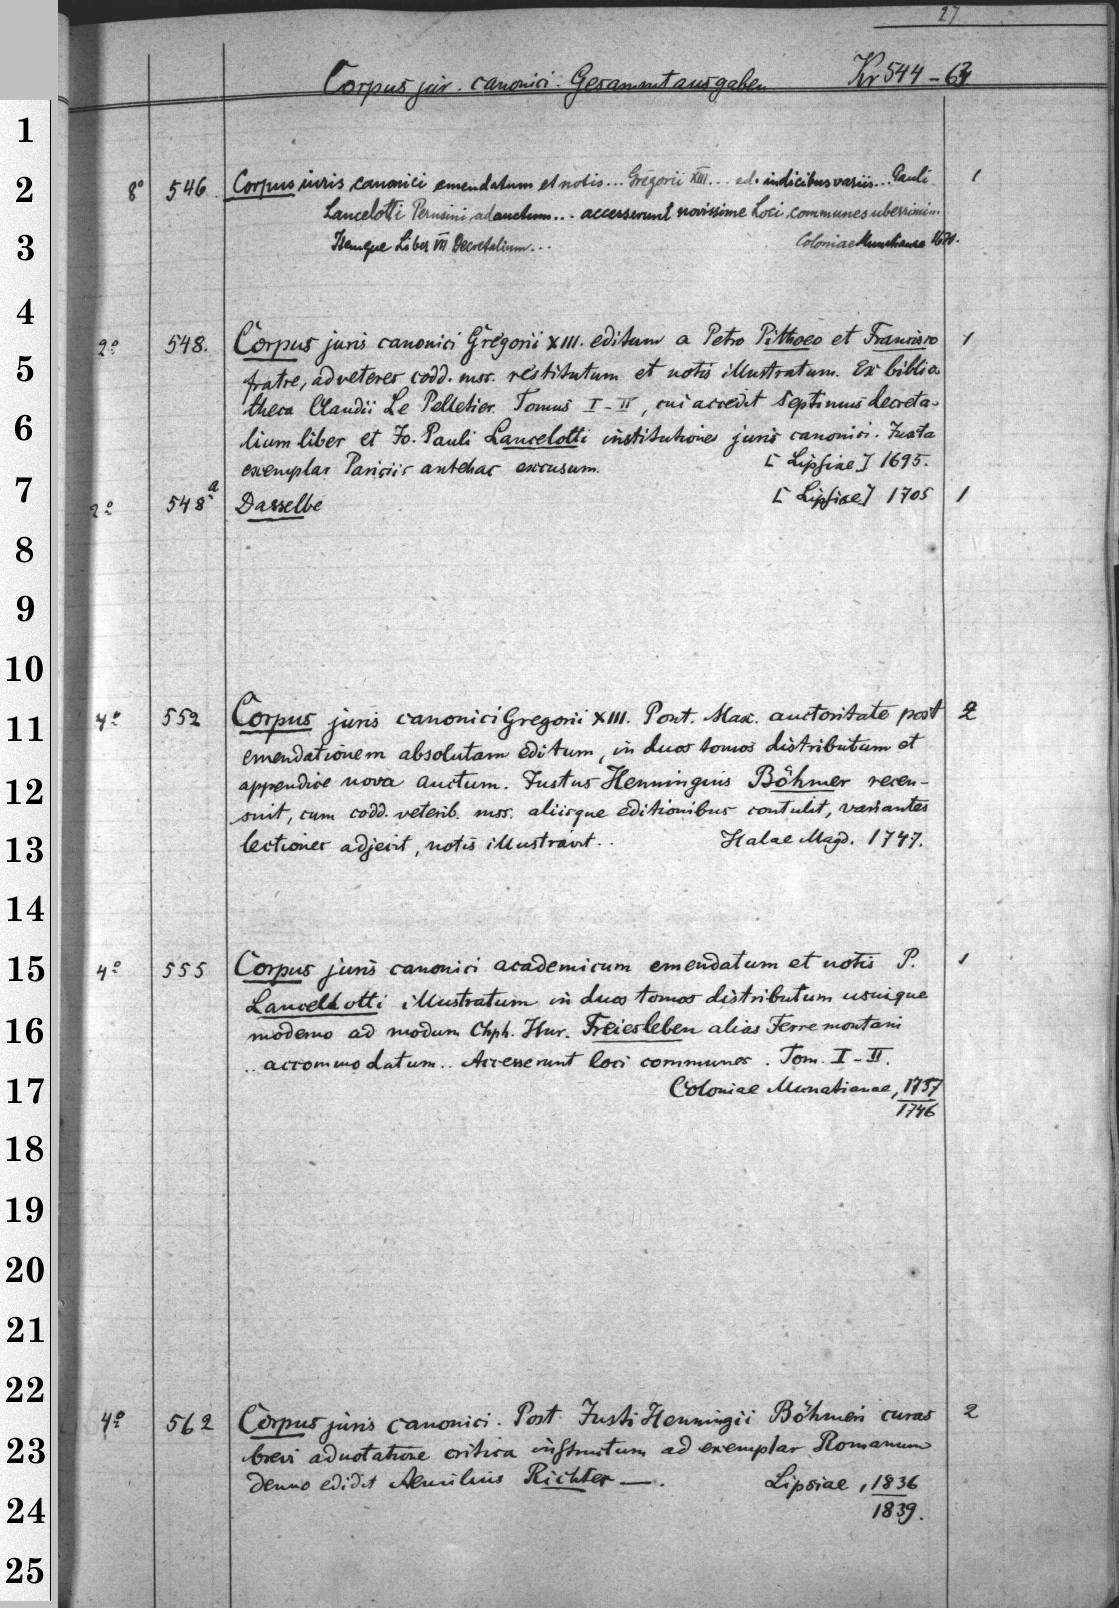 27
Corpus jur. canonici. Gesammtausgaben Kr 544-63
1
2
3
4
5
6
7
8
9
10
11
12
13
14
15
16
17
18
19
20
21
22
23
24
25
8° 546 Corpus iuris canonici emendatum et notis... Gregorii XIII... ed. indicibus variis... Pauli 1
Lancelotti Perusini adauctum... accesserunt novissime Loci communes uberrimi...
Itemque Liber VII Decretalium... Coloniae Munatianae
2° 548. Corpus juris canonici Gregorii XIII. editum a Petro Pithoeo et Francisco 1
fratre, ad veteres codd. mss. restitutum et notis illustratum. Ex biblio-
theca Claudii Le Pelletier. Tomus I-II, cui accedit septimus decreta-
lium liber et Jo. Pauli Lancelotti institutiones juris canonici. Juxta
exemplar Parisiis antehac excusum. [Lipsiae] 1695.
2° 548a Dasselbe [Lipsiae] 1705 1
4° 552 Corpus juris canonici Gregorii XIII. Pont. Max. auctoritate post 2
emendationem absolutam editum, in duos tomos distributum et
appendice nova auctum. Justus Henningius Böhmer recen-
suit, cum codd. veterib. mss. aliisque editionibus contulit, variantes
lectiones adjecit, notis illustravit.. Halae Magd. 1747.
4° 555 Corpus juris canonici academicum emendatum et notis P. 1
Lancellotti illustratum in duos tomos distributum usuique
moderno ad modum Chph. Hnr. Freiesleben alias Ferromontani
.. accommodatum.. Accesserunt loci communes. Tom. I-II.
Coloniae Munatianae, 1757
1746
4° 562 Corpus juris canonici. Post Justi Henningii Böhmeri curas 2
brevi adnotatione critica instructum ad exemplar Romanum
denuo edidit Aemilius Richter —. Lipsiae, 1836
1839.